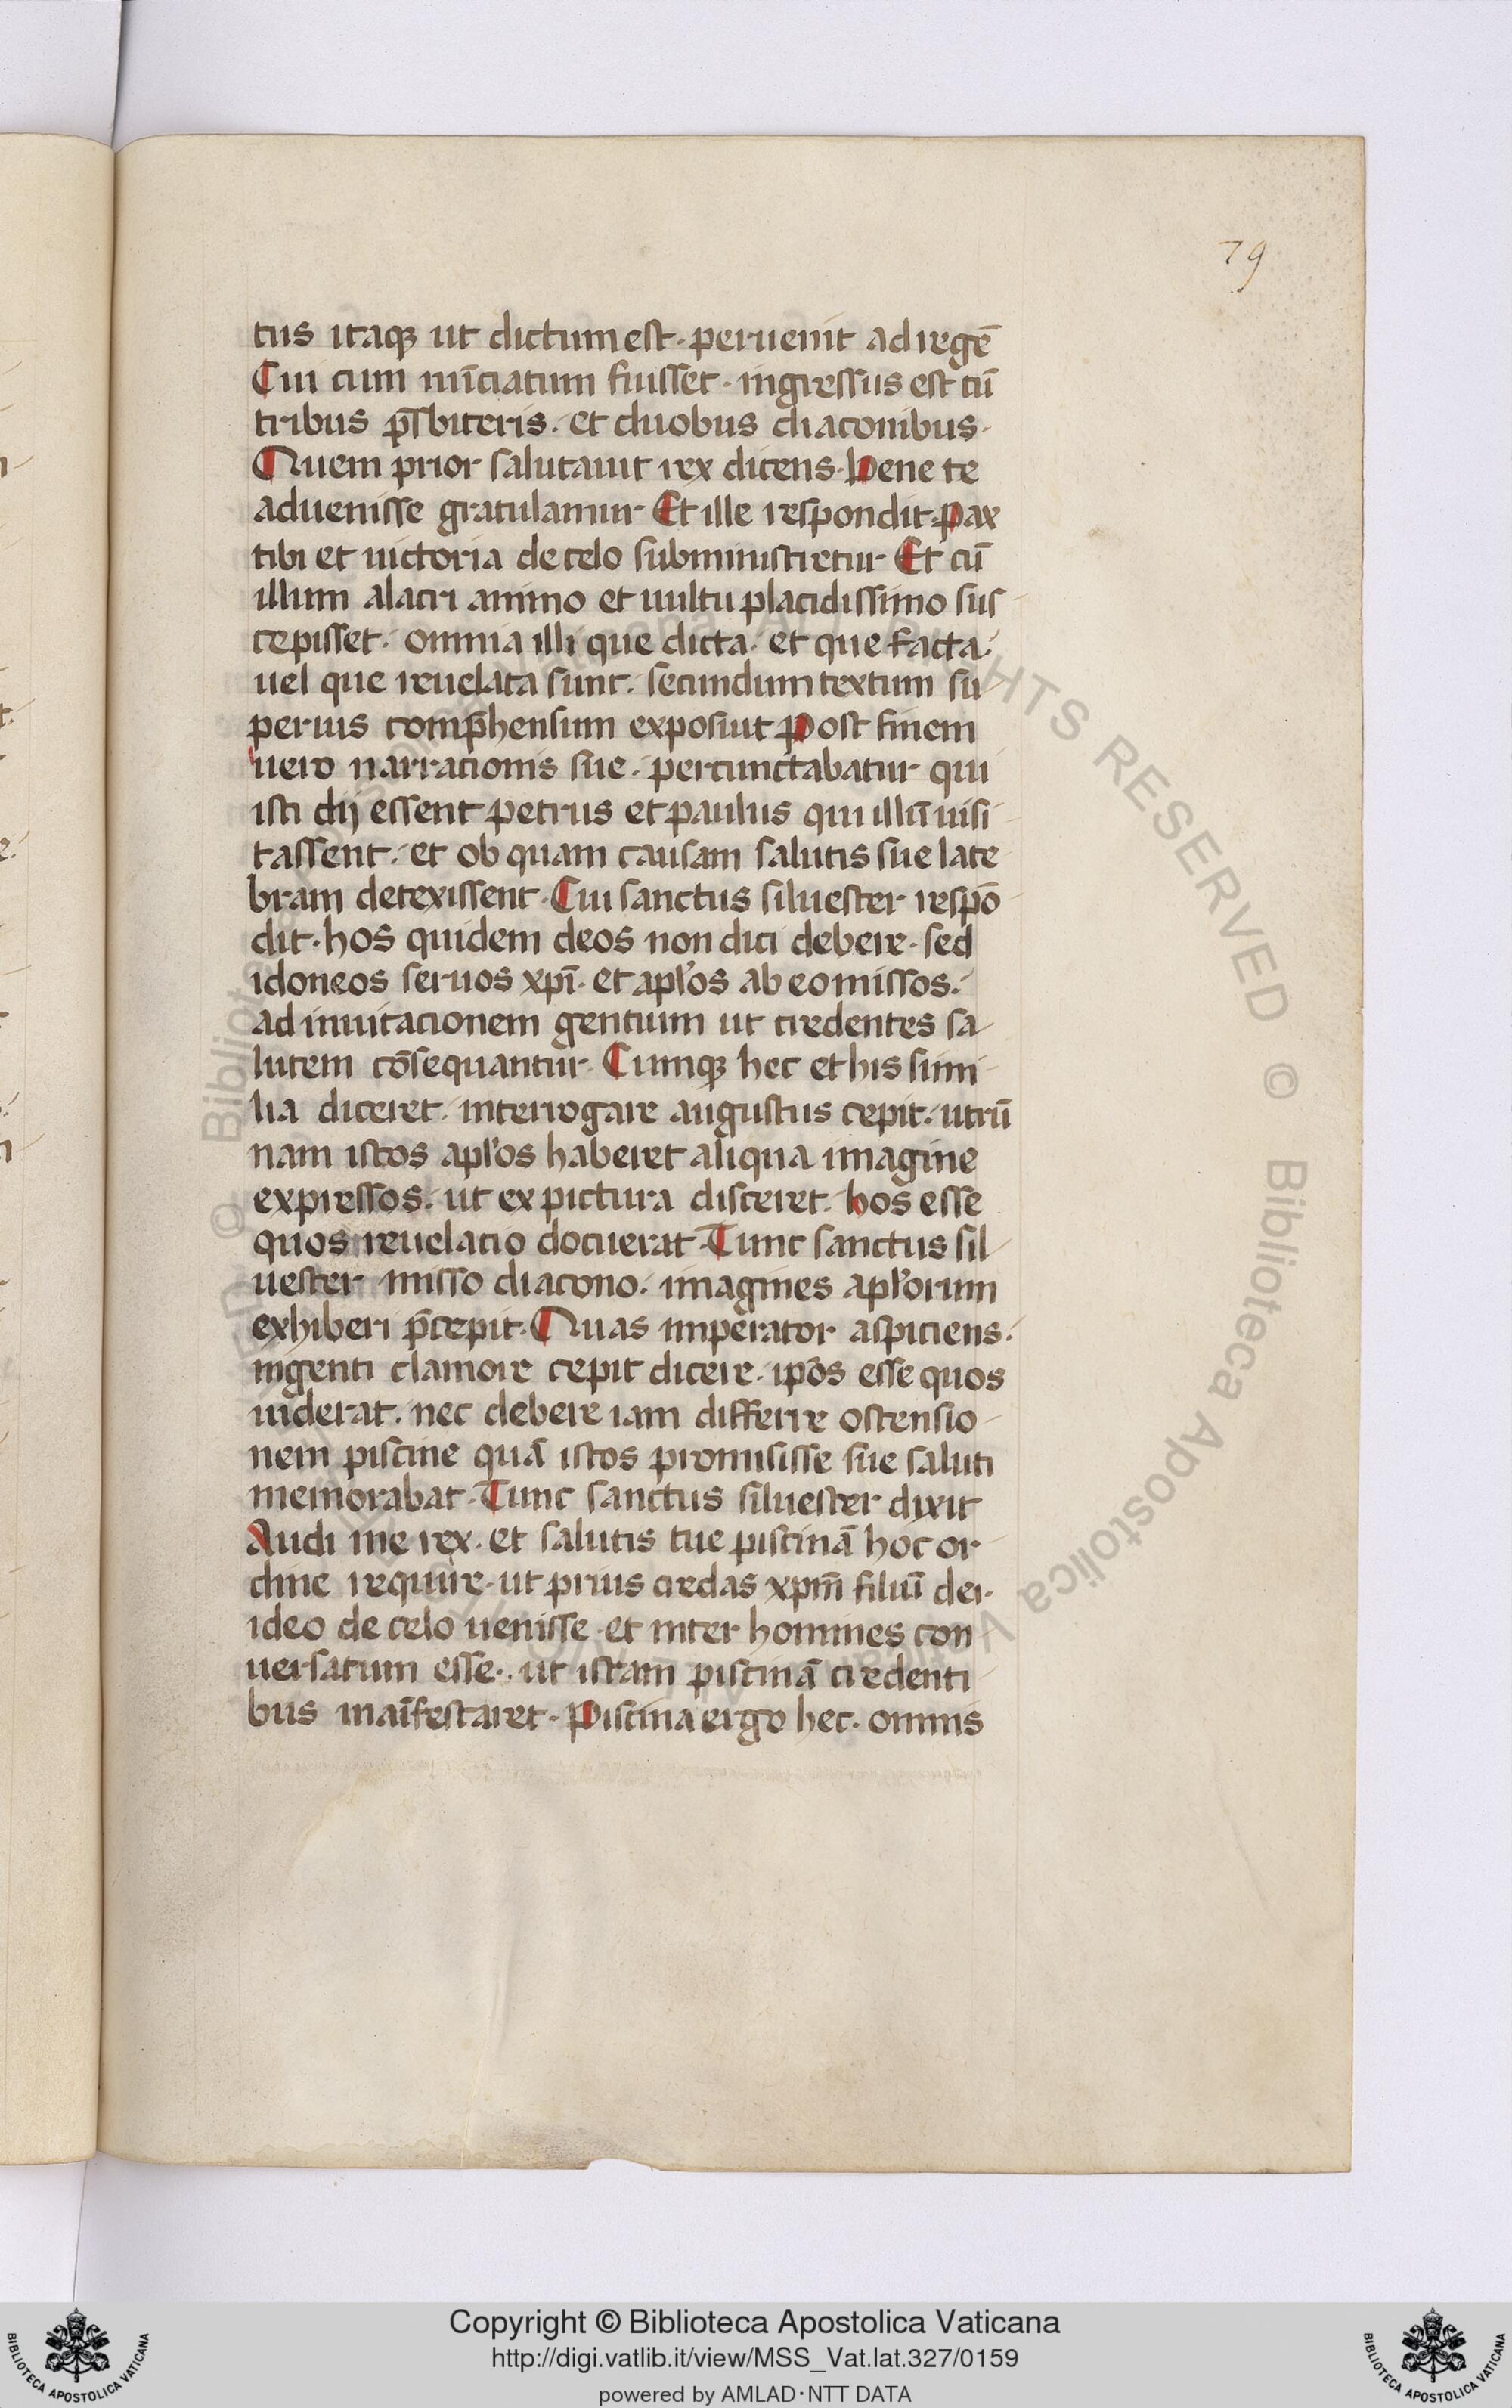 79
tus itaqꝫ ut dictum est. peruenit ad regē
Cui cum nūciatum fuisset. ingressus est cū
tribus p̄sbiteris. et duobus diaconibus.
Quem prior salutauit rex dicens. Bene te
aduenisse gratulamur. Et ille respondit. Pax
tibi et uictoria de celo subministretur. Et cū
illum alacri animo et uultu placidissimo sus
cepisset. omnia illi que dicta. et que facta.
uel que reuelata sunt. secundum textum su
perius comp̄hensum exposuit. Post finem
uero narracionis sue. percunctabatur qui
isti dij essent petrus et paulus qui illū uisi
tassent. et ob quam causam salutis sue late
bram detexissent. Cui sanctus siluester respō
dit. hos quidem deos non dici debere. sed
idoneos seruos xpī. et apl'os ab eo missos.
ad inuitacionem gentium ut credentes sa
lutem cōsequantur. Cumqꝫ hec et his simi
lia diceret. interrogare augustus cepit. utrū
nam istos apl'os haberet aliqua imagine
expressos. ut ex pictura disceret. hos esse
quos reuelacio docuerat. Tunc sanctus sil
uester misso diacono. imagines apl'orum
exhiberi p̄cepit. Quas imperator aspiciens.
ingenti clamore cepit dicere. ip̄os esse quos
uiderat. nec debere iam differre ostensio
nem piscine quā istos promisisse sue saluti
memorabat. Tunc sanctus siluester dixit
Audi me rex. et salutis tue piscinā hoc or
dine require. ut prius credas xpm̄ filiū dei.
ideo de celo uenisse. et inter homines con
uersatum esse. ut istam piscinā credenti
bus maīfestaret. Piscina ergo hec. omnis
Copyright © Biblioteca Apostolica Vaticana
http://digi.vatlib.it/view/MSS_Vat.lat.327/0159
powered by AMLAD·NTT DATA